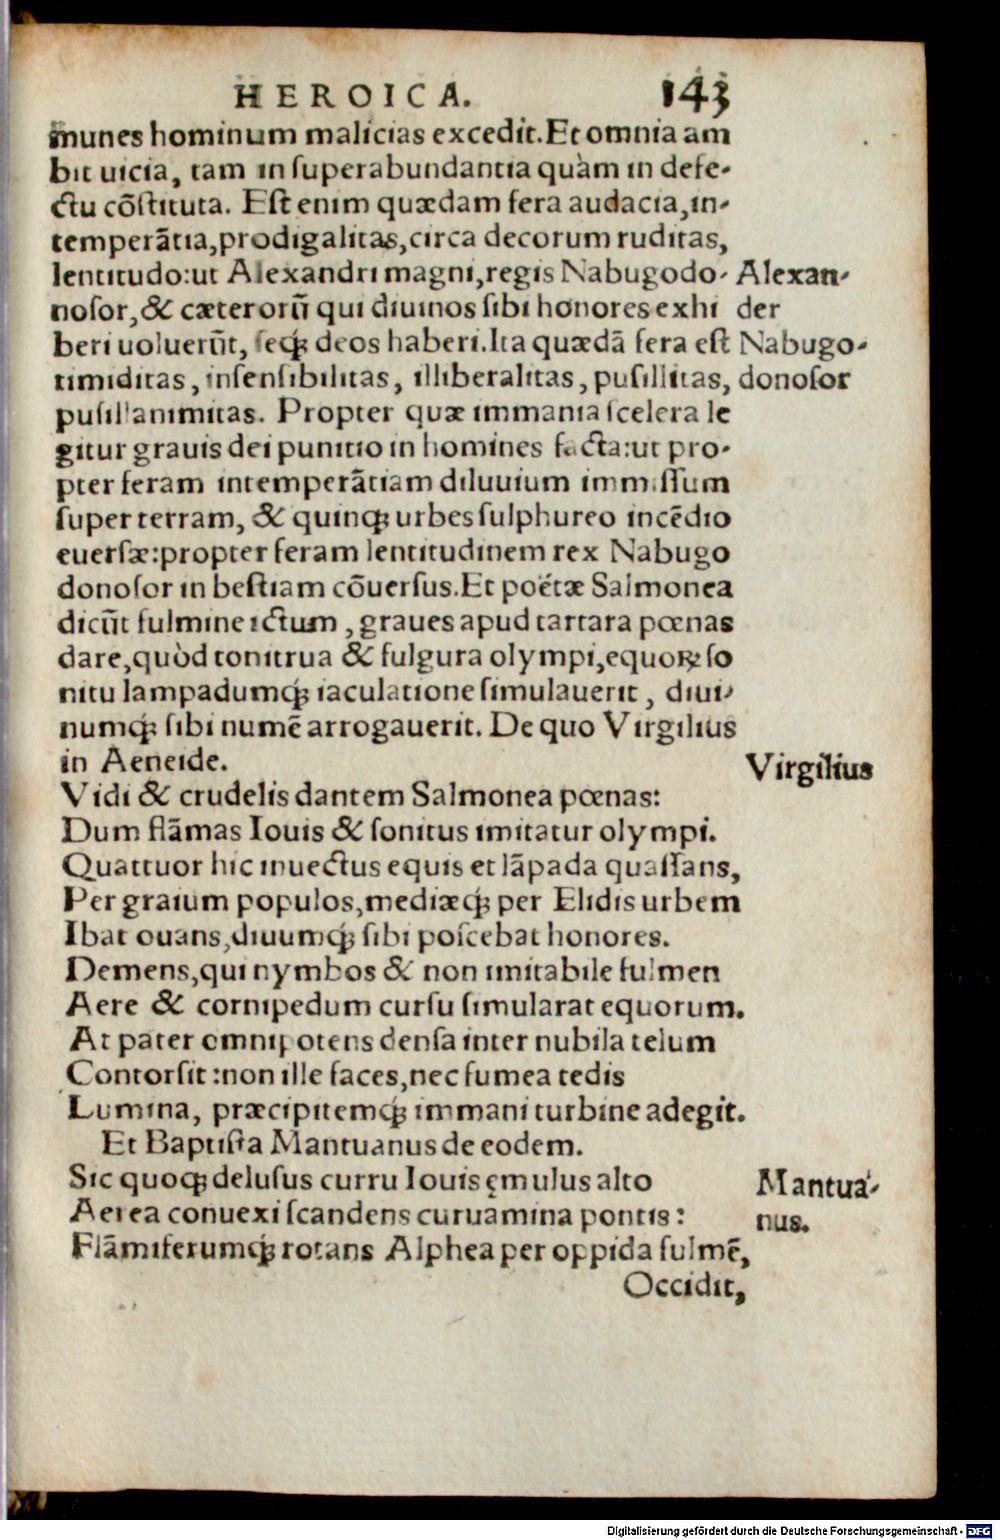 HEROICA. 143
munes hominum malicias excedit. Et omnia am
bit uicia, tam in ſuperabundantia quàm in defe-
ctu cōſtituta. Eſt enim quædam fera audacia, in-
temperātia, prodigalitas, circa decorum ruditas,
lentitudo: ut Alexandri magni, regis Nabugodo- Alexan-
noſor, & cæterorū qui diuinos ſibi honores exhi der
beri uoluerūt, ſeq́ꝫ deos haberi. Ita quædā fera eſt Nabugo-
timiditas, inſenſibilitas, illiberalitas, puſillitas, donoſor
puſillanimitas. Propter quæ immania ſcelera le
gitur grauis dei punitio in homines facta: ut pro-
pter feram intemperātiam diluuium immiſſum
ſuper terram, & quinqꝫ urbes ſulphureo incēdio
euerſæ: propter feram lentitudinem rex Nabugo
donoſor in beſtiam cōuerſus. Et poëtæ Salmonea
dicūt fulmine ictum, graues apud tartara pœnas
dare, quòd tonitrua & fulgura olympi, equoꝝ ſo
nitu lampadumq́ꝫ iaculatione ſimulauerit, diui-
numq́ꝫ ſibi numē arrogauerit. De quo Virgilius
in Aeneide. Virgilius
Vidi & crudelis dantem Salmonea pœnas:
Dum flāmas Iouis & ſonitus imitatur olympi.
Quattuor hic inuectus equis et lāpada quaſſans,
Per graium populos, mediæq́ꝫ per Elidis urbem
Ibat ouans, diuumq́ꝫ ſibi poſcebat honores.
Demens, qui nymbos & non imitabile fulmen
Aere & cornipedum curſu ſimularat equorum.
At pater omnipotens denſa inter nubila telum
Contorſit: non ille faces, nec fumea tedis
Lumina, præcipitemq́ꝫ immani turbine adegit.
Et Baptiſta Mantuanus de eodem.
Sic quoqꝫ deluſus curru Iouis ęmulus alto Mantua-
Aerea conuexi ſcandens curuamina pontis: nus.
Flāmiferumq́ꝫ rotans Alphea per oppida fulmē,
Occidit,
Digitalisierung gefördert durch die Deutsche Forschungsgemeinschaft - DFG